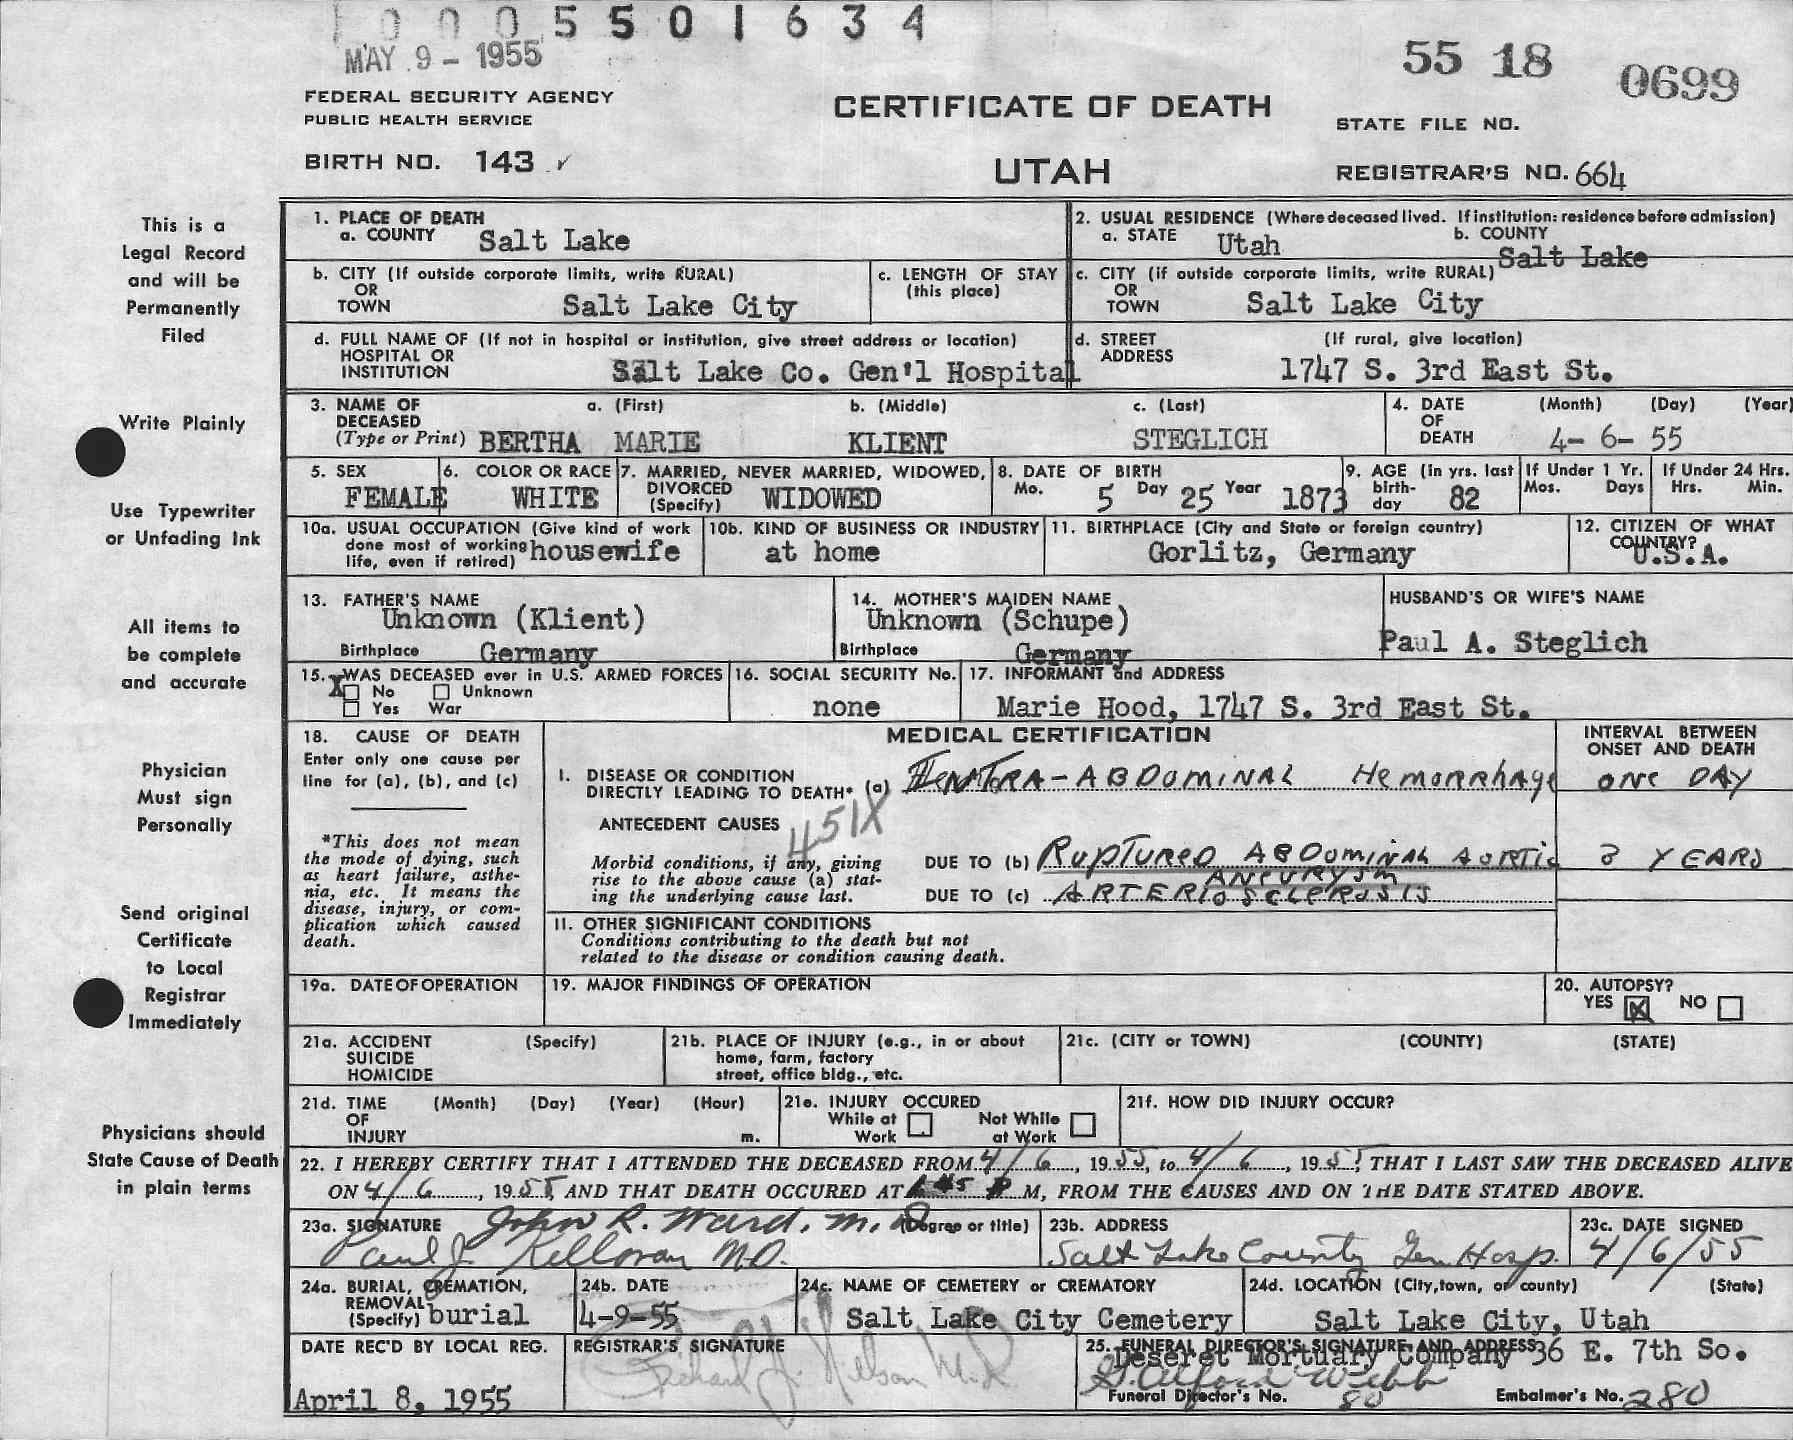 0005501634
MAY 9 - 1955
55 18 0699
FEDERAL SECURITY AGENCY
PUBLIC HEALTH SERVICE
CERTIFICATE OF DEATH
STATE FILE NO.
BIRTH NO. 143
UTAH
REGISTRAR'S NO. 664
This is a
Legal Record
and will be
Permanently
Filed
Write Plainly
Use Typewriter
or Unfading Ink
All items to
be complete
and accurate
Physician
Must sign
Personally
Send original
Certificate
to Local
Registrar
Immediately
Physicians should
State Cause of Death
in plain terms
1. PLACE OF DEATH
a. COUNTY Salt Lake
2. USUAL RESIDENCE (Where deceased lived. If institution: residence before admission)
a. STATE Utah b. COUNTY Salt Lake
b. CITY (If outside corporate limits, write RURAL)
OR
TOWN Salt Lake City
c. LENGTH OF STAY
(this place)
c. CITY (if outside corporate limits, write RURAL)
OR
TOWN Salt Lake City
d. FULL NAME OF (If not in hospital or institution, give street address or location)
HOSPITAL OR
INSTITUTION Salt Lake Co. Gen'l Hospital
d. STREET (If rural, give location)
ADDRESS 1747 S. 3rd East St.
3. NAME OF a. (First) b. (Middle) c. (Last)
DECEASED
(Type or Print) BERTHA MARIE KLIENT STEGLICH
4. DATE (Month) (Day) (Year)
OF
DEATH 4- 6- 55
5. SEX
FEMALE
6. COLOR OR RACE
WHITE
7. MARRIED, NEVER MARRIED, WIDOWED,
DIVORCED
(Specify) WIDOWED
8. DATE OF BIRTH
Mo. 5 Day 25 Year 1873
9. AGE (in yrs. last
birth-
day 82
If Under 1 Yr.
Mos. Days
If Under 24 Hrs.
Hrs. Min.
10a. USUAL OCCUPATION (Give kind of work
done most of working
life, even if retired) housewife
10b. KIND OF BUSINESS OR INDUSTRY
at home
11. BIRTHPLACE (City and State or foreign country)
Gorlitz, Germany
12. CITIZEN OF WHAT
COUNTRY?
U.S.A.
13. FATHER'S NAME
Unknown (Klient)
Birthplace Germany
14. MOTHER'S MAIDEN NAME
Unknown (Schupe)
Birthplace Germany
HUSBAND'S OR WIFE'S NAME
Paul A. Steglich
15. WAS DECEASED ever in U.S. ARMED FORCES
X No Unknown
Yes War
16. SOCIAL SECURITY No.
none
17. INFORMANT and ADDRESS
Marie Hood, 1747 S. 3rd East St.
18. CAUSE OF DEATH
Enter only one cause per
line for (a), (b), and (c)
*This does not mean
the mode of dying, such
as heart failure, asthe-
nia, etc. It means the
disease, injury, or com-
plication which caused
death.
MEDICAL CERTIFICATION
INTERVAL BETWEEN
ONSET AND DEATH
I. DISEASE OR CONDITION
DIRECTLY LEADING TO DEATH* (a) INTRA-ABDOMINAL HEMORRHAGE ONE DAY
ANTECEDENT CAUSES 451X
Morbid conditions, if any, giving
rise to the above cause (a) stat-
ing the underlying cause last.
DUE TO (b) RUPTURED ABDOMINAL AORTIC YEARS
ANEURYSM
DUE TO (c) ARTERIOSCLEROSIS
II. OTHER SIGNIFICANT CONDITIONS
Conditions contributing to the death but not
related to the disease or condition causing death.
19a. DATE OF OPERATION
19. MAJOR FINDINGS OF OPERATION
20. AUTOPSY?
YES X NO
21a. ACCIDENT (Specify)
SUICIDE
HOMICIDE
21b. PLACE OF INJURY (e.g., in or about
home, farm, factory
street, office bldg., etc.
21c. (CITY or TOWN) (COUNTY) (STATE)
21d. TIME (Month) (Day) (Year) (Hour)
OF
INJURY m.
21e. INJURY OCCURED
While at Not While
Work at Work
21f. HOW DID INJURY OCCUR?
22. I HEREBY CERTIFY THAT I ATTENDED THE DECEASED FROM 4/6, 1955, to 4/6, 1955, THAT I LAST SAW THE DECEASED ALIVE
ON 4/6, 1955, AND THAT DEATH OCCURED AT M, FROM THE CAUSES AND ON THE DATE STATED ABOVE.
23a. SIGNATURE John R. Ward, M.D. (Degree or title)
Paul J. Killoran M.D.
23b. ADDRESS
Salt Lake County Gen Hosp.
23c. DATE SIGNED
4/6/55
24a. BURIAL, CREMATION,
REMOVAL
(Specify) burial
24b. DATE
4-9-55
24c. NAME OF CEMETERY or CREMATORY
Salt Lake City Cemetery
24d. LOCATION (City, town, or county) (State)
Salt Lake City, Utah
DATE REC'D BY LOCAL REG.
April 8, 1955
REGISTRAR'S SIGNATURE
Richard J. Nelson M.D.
25. FUNERAL DIRECTOR'S SIGNATURE AND ADDRESS
Deseret Mortuary Company 36 E. 7th So.
Webb
Funeral Director's No. 80 Embalmer's No. 280